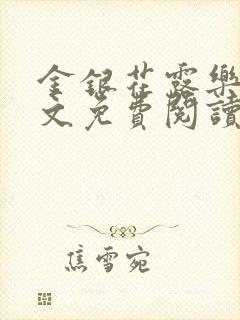 金銀花露樂
文免費閱讀
焦雪宛